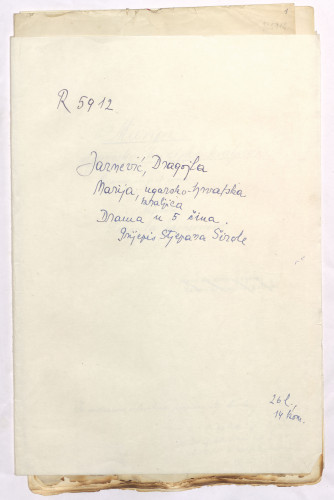 R 5912
Jarnević, Dragojla
Marija, ugarsko-hrvatska
kraljica
Drama u 5 čina.
Prijepis Stjepana Širole
26 l.,
14 kom.